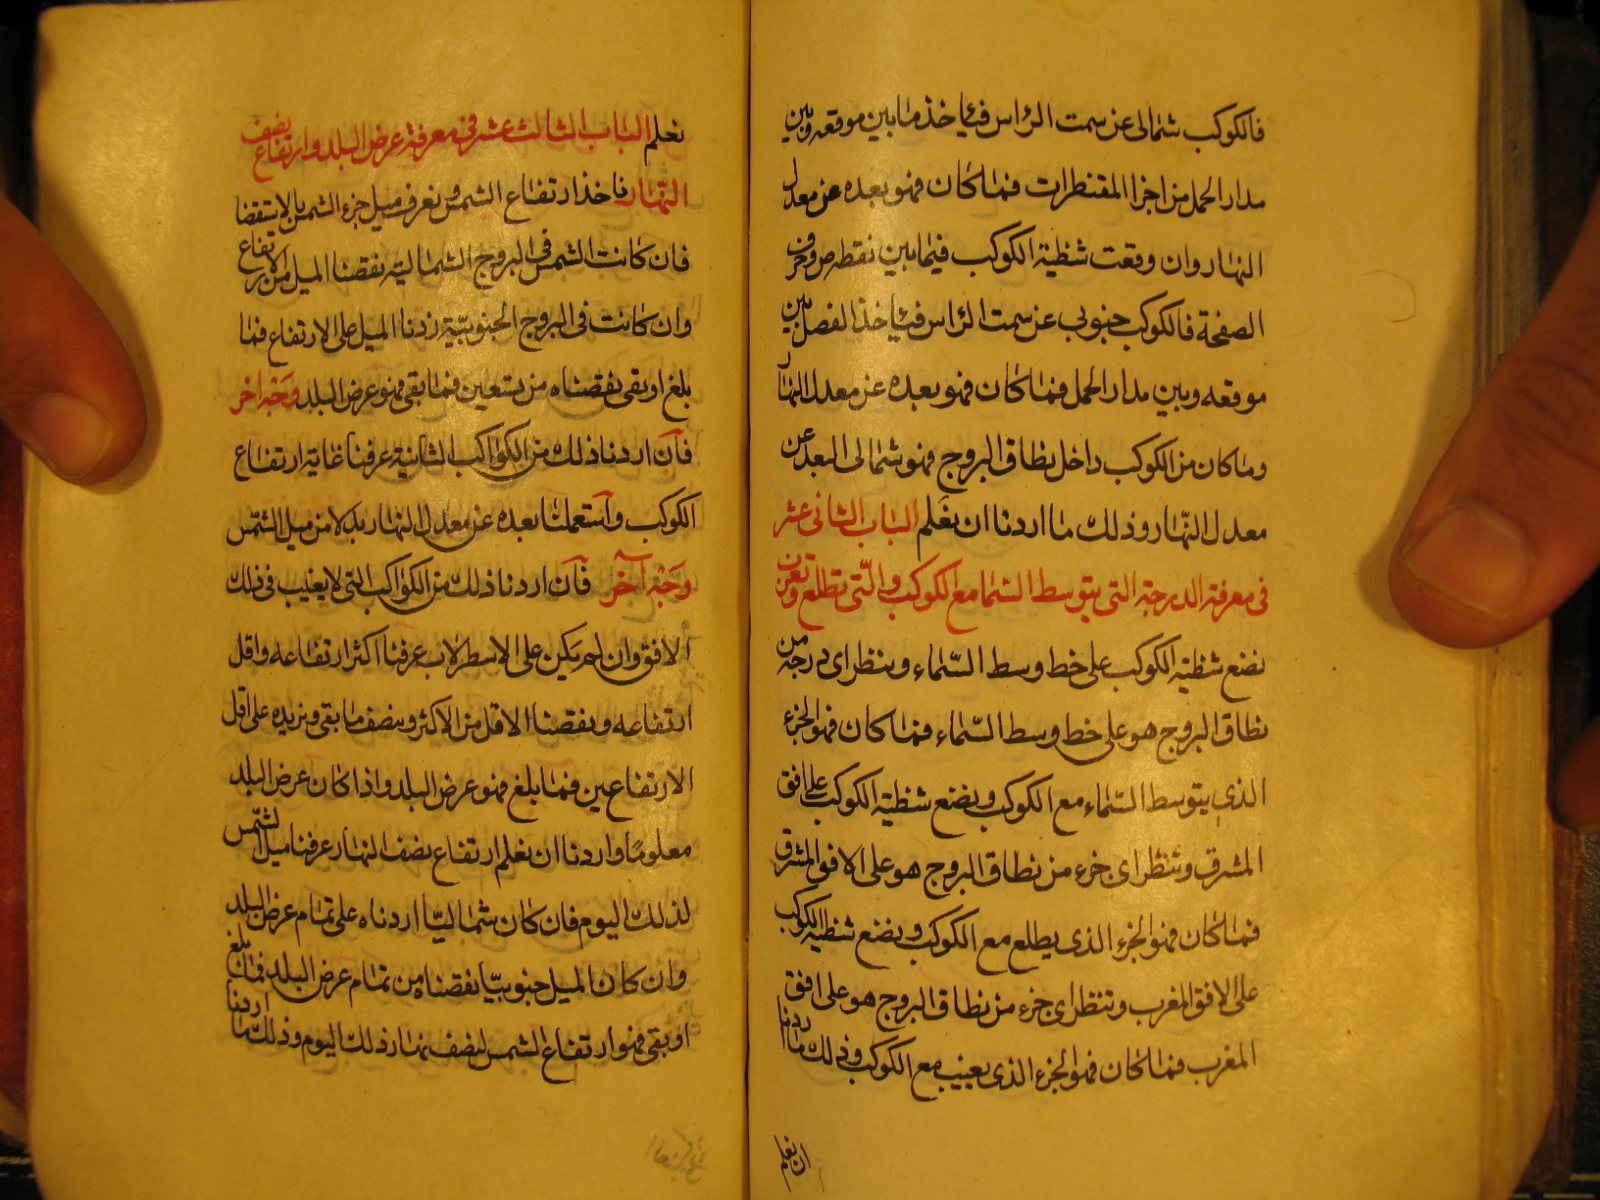 فالكوكب شمالى عن سمت الراس فيئاخذ ما بين موقعه وبين
مدار الحمل من اجزا المقنطرات فما كان فهو بعده عن معدل
النهار وان وقعت شظية الكوكب فيما بين نقطه ص وحرف
الصفحة فالكوكب جنوبى عن سمت الراس فيئاخذ الفصل بين
موقعه وبين مدار الحمل فما كان فهو بعده عن معدل النهار
وما كان من الكوكب داخل نطاق البروج فهو شمالى البعد عن
معدل النهار وذلك ما اردنا ان نعلم الباب الثانى عشر
فى معرفة الدرجة التى يتوسط السما مع الكوكب والتى تطلع وتغرب
نضع شظية الكوكب على خط وسط السماء وننظر اى درجة من
نطاق البروج هو على خط وسط السماء فما كان فهو الجزء
الذى يتوسط السماء مع الكوكب ونضع شظية الكوكب على افق
المشرق وننظر اى جزء من نطاق البروج هو على الافق المشرق
فما كان فهو الجزء الذى يطلع مع الكوكب ونضع شظية الكوكب
على الافق المغرب وننظر اى جزء من نطاق البروج هو على افق
المغرب فما كان فهو الجزء الذى يغيب مع الكوكب وذلك ما اردنا
ان نعلم
نعلم الباب الثالث عشر فى معرفة عرض البلد وارتفاع نصف
النهار ناخذ ارتفاع الشمس ونعرف ميل جزء الشمس بالاستقضا
فان كانت الشمس فى البروج الشمالية نقصنا الميل من الارتفاع
وان كانت فى البروج الجنوبية زدنا الميل على الارتفاع فما
بلغ او بقى نقصناه من تسعين فما بقى فهو عرض البلد وجه اخر
فان اردنا ذلك من الكواكب الثابتة عرفنا غاية ارتفاع
الكوكب واستعملنا بعده عن معدل النهار بدلا من ميل الشمس
وجه آخر فان اردنا ذلك من الكواكب التى لا يغيب فى ذلك
الافق وان لم يكن على الاسطرلاب عرفنا اكثر ارتفاعه واقل
ارتفاعه ونقصنا الاقل من الاكثر وننصف ما بقى ونزيده على اقل
الارتفاعين فما بلغ فهو عرض البلد واذا كان عرض البلد
معلوما واردنا ان نعلم ارتفاع نصف النهار عرفنا ميل الشمس
لذلك اليوم فان كان شماليا اردناه على تمام عرض البلد
وان كان الميل جنوبيا نقصناه من تمام عرض البلد فما بلغ
او بقى فهو ارتفاع الشمس لنصف نهار ذلك اليوم وذلك ما اردنا